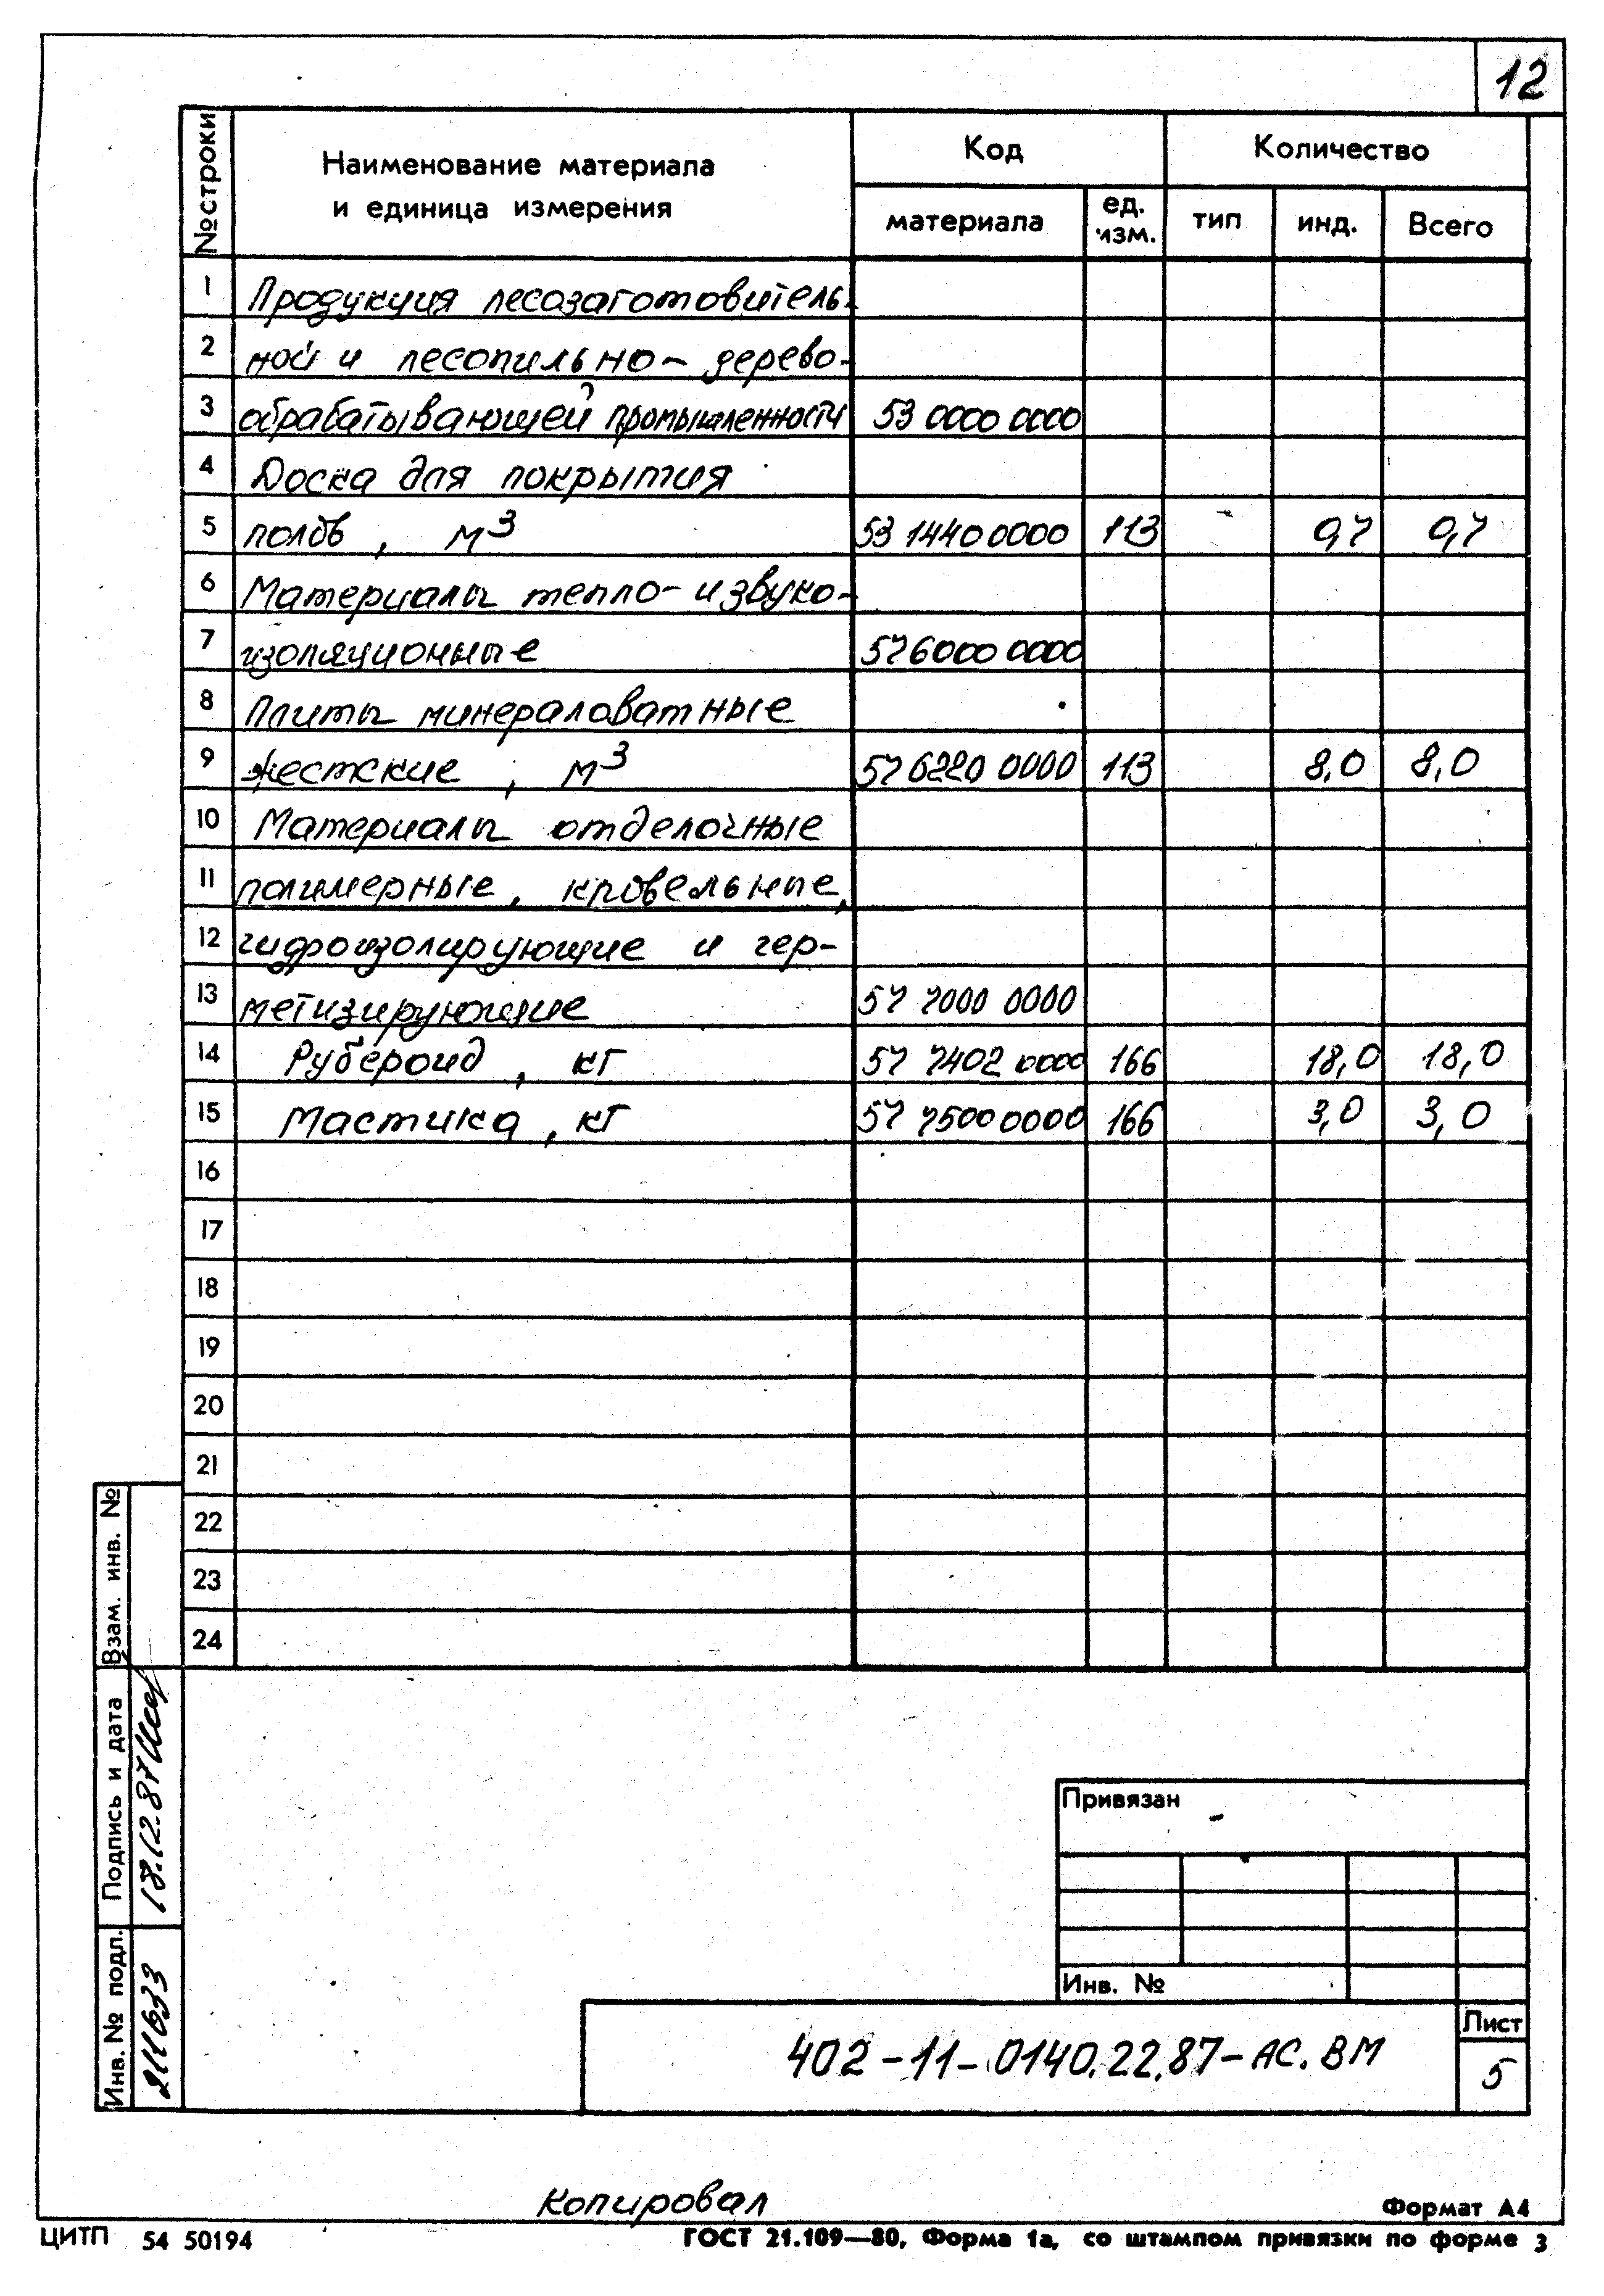 12
№ строки
Наименование материала
и единица измерения
Код
Количество
материала
ед.
изм.
тип
инд.
Всего
1 Продукция лесозаготовитель-
2 ной и лесопильно-дерево-
3 обрабатывающей промышленности 53 0000 0000
4 Доска для покрытия
5 полов, м3 53 1440 0000 113 0,7 0,7
6 Материалы тепло- и звуко-
7 изоляционные 57 6000 0000
8 Плиты минераловатные
9 жесткие, м3 57 6220 0000 113 8,0 8,0
10 Материалы отделочные
11 полимерные, кровельные,
12 гидроизолирующие и гер-
13 метизирующие 57 7000 0000
14 Рубероид, кг 57 7402 0000 166 18,0 18,0
15 Мастика, кг 57 7500 0000 166 3,0 3,0
16
17
18
19
20
21
22
23
24
Взам. инв. №
Подпись и дата
18.12.87
Инв. № подл.
Привязан
Инв. №
402-11-0140.22.87-АС.ВМ
Лист
5
Копировал
Формат А4
ЦИТП 54 50194
ГОСТ 21.109—80, Форма 1а, со штампом привязки по форме 3